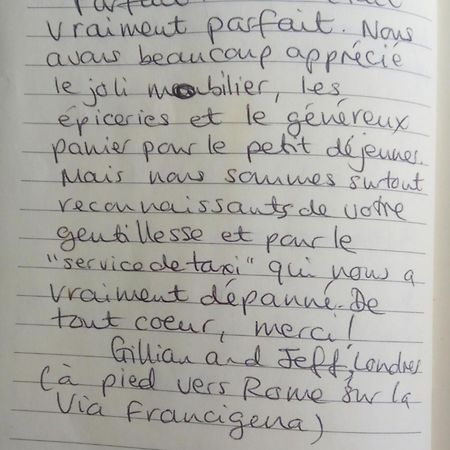 vraiment parfait. Nous
avons beaucoup apprécié
le joli mobilier, les
épiceries et le généreux
panier pour le petit déjeuner.
Mais nous sommes surtout
reconnaissants de votre
gentillesse et pour le
"service de taxi" qui nous a
vraiment dépanné. De
tout coeur, merci!
Gillian and Jeff, Londres
(à pied vers Rome sur la
Via Francigena)